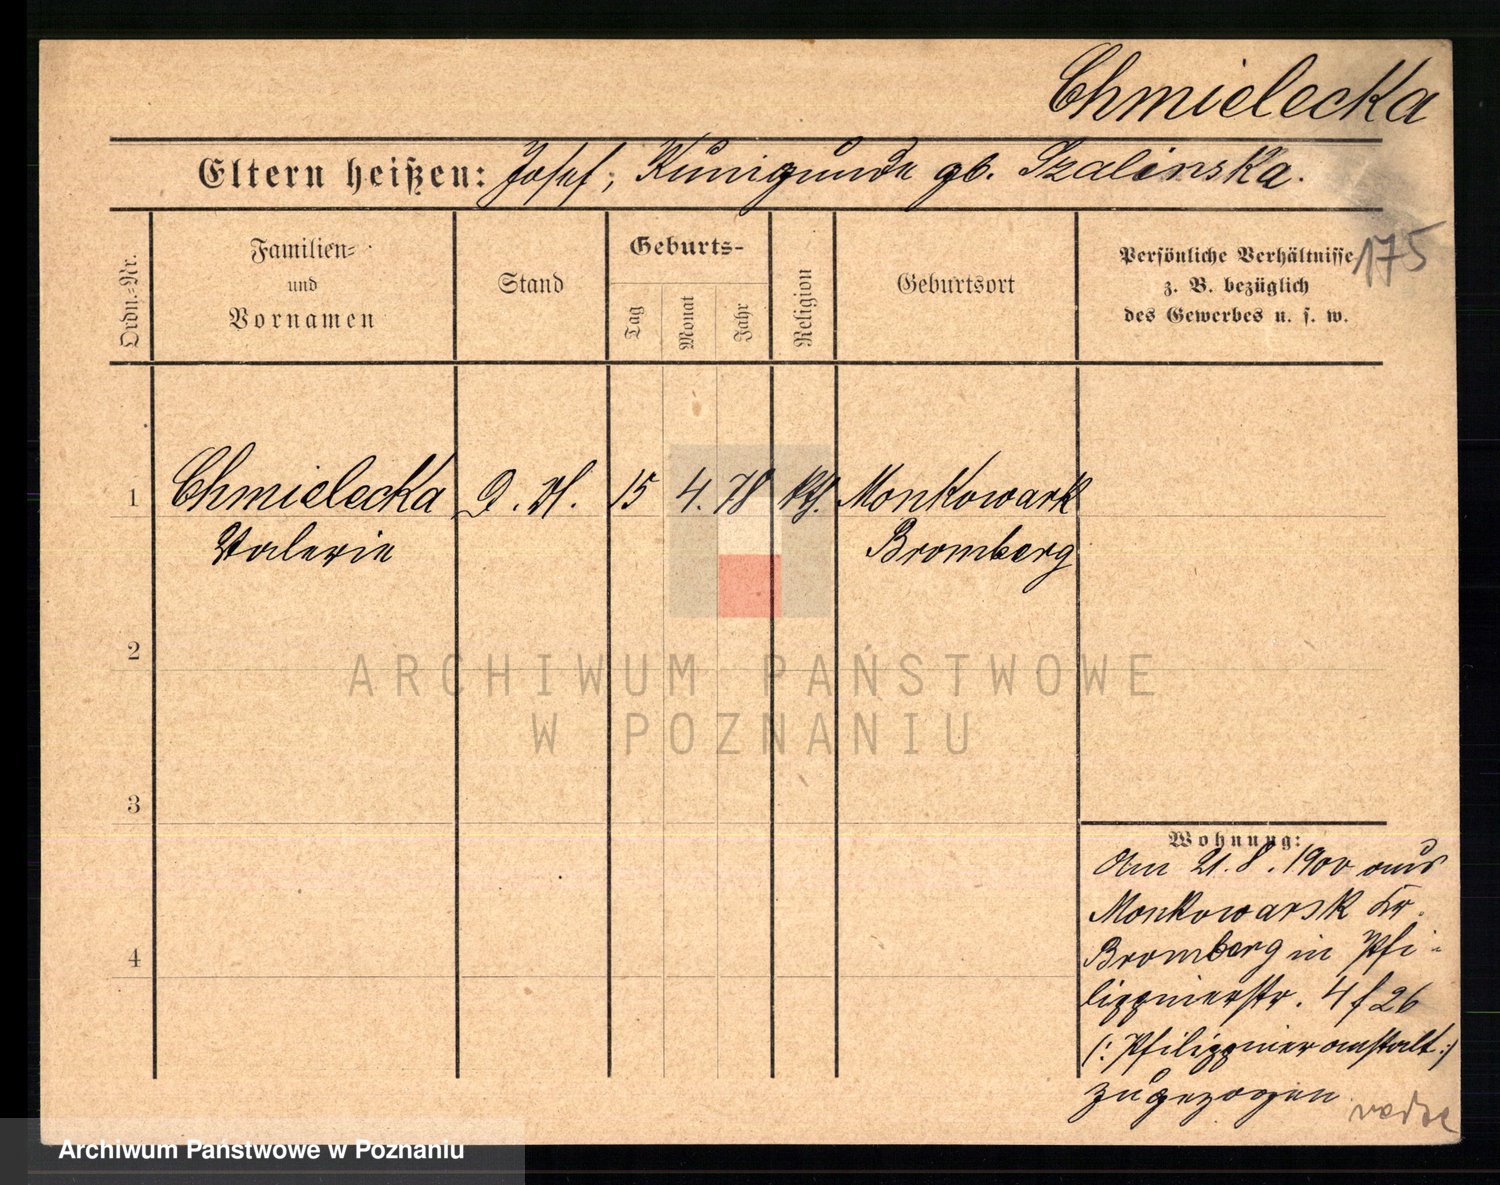 Chmielecka
Eltern heißen: Josef, Kunigunde gb. Szalinska.
175
Ordn.-Nr.
Familien-
und
Vornamen
Stand
Geburts-
Tag
Monat
Jahr
Religion
Geburtsort
Persönliche Verhältnisse
z. B. bezüglich
des Gewerbes u. s. w.
1 Chmielecka D. M. 15 4. 78 kth. Monkowarsk
Valerie Bromberg
2
3
4
ARCHIWUM PAŃSTWOWE
W POZNANIU
Wohnung:
Am 21.8.1900 aus
Monkowarsk Kr.
Bromberg in Phi-
lippinerstr. 4 f 26
(: Philippineranstalt :)
zugezogen
Archiwum Państwowe w Poznaniu